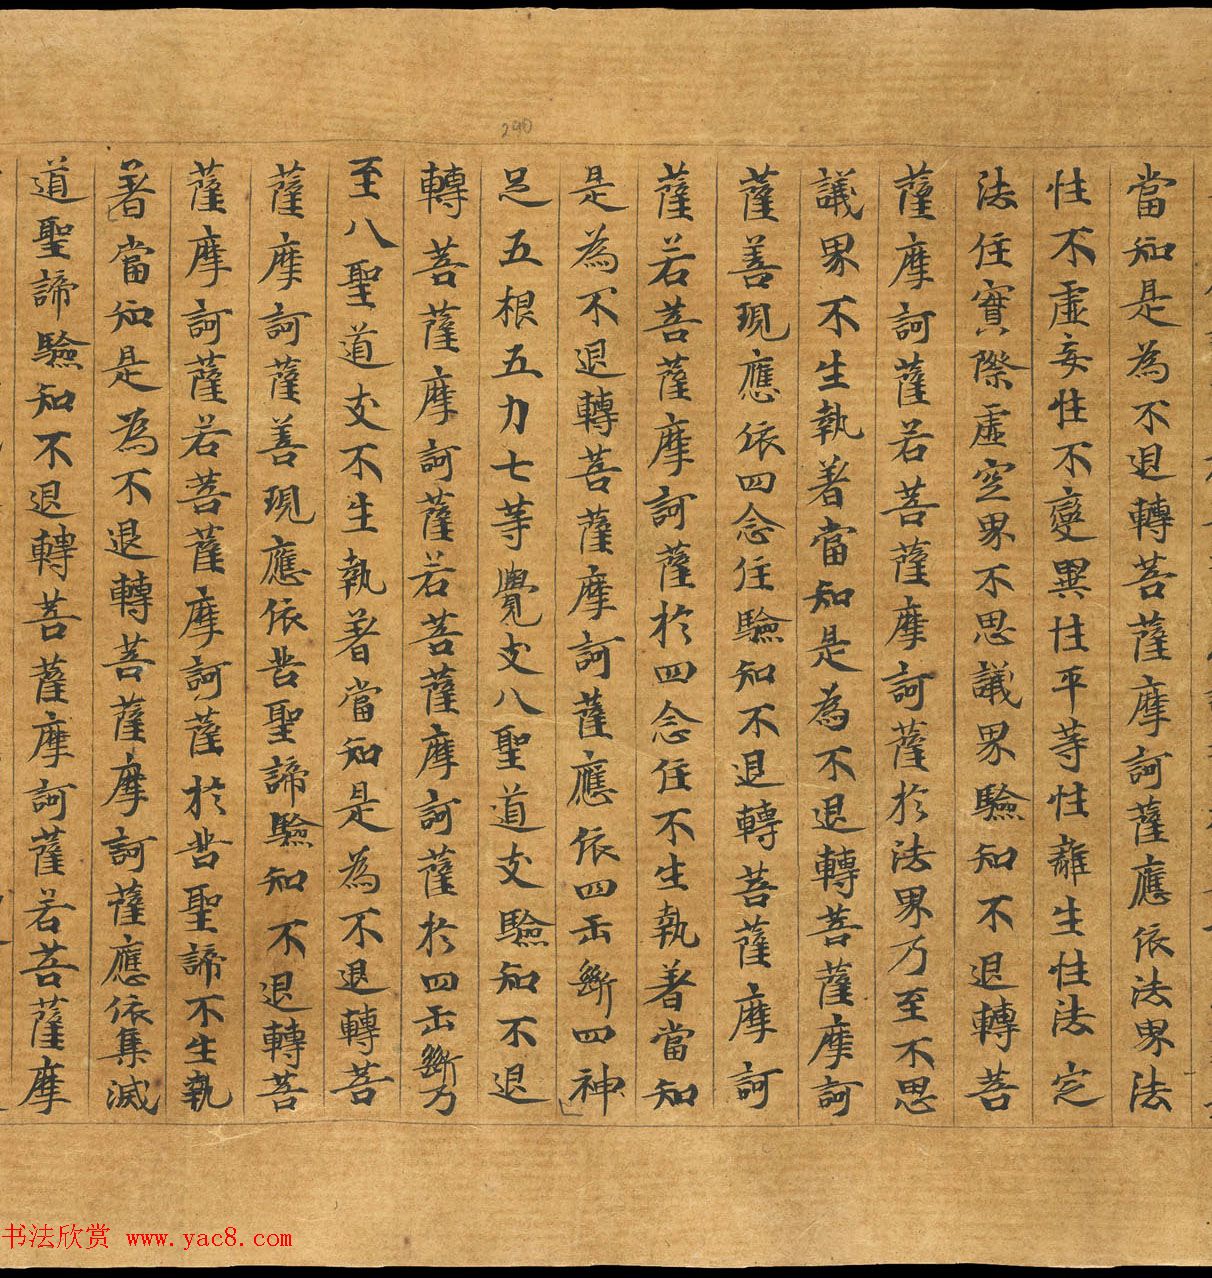 當知是為不退轉菩薩摩訶薩應依法界法
性不虛妄性不變異性平等性離生性法定
法住實際虛空界不思議界驗知不退轉菩
薩摩訶薩若菩薩摩訶薩於法界乃至不思
議界不生執著當知是為不退轉菩薩摩訶
薩善現應依四念住驗知不退轉菩薩摩訶
薩若菩薩摩訶薩於四念住不生執著當知
是為不退轉菩薩摩訶薩應依四正斷四神
足五根五力七等覺支八聖道支驗知不退
轉菩薩摩訶薩若菩薩摩訶薩於四正斷乃
至八聖道支不生執著當知是為不退轉菩
薩摩訶薩善現應依苦聖諦驗知不退轉菩
薩摩訶薩若菩薩摩訶薩於苦聖諦不生執
著當知是為不退轉菩薩摩訶薩應依集滅
道聖諦驗知不退轉菩薩摩訶薩若菩薩摩
290
书法欣赏 www.yac8.com